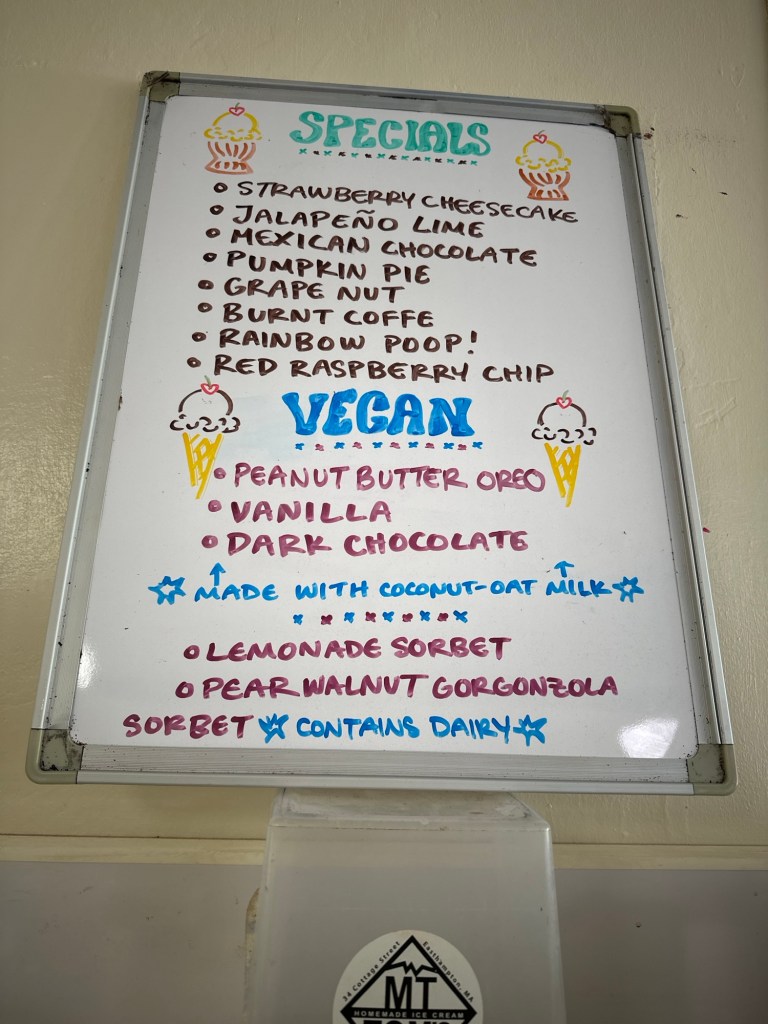 SPECIALS
• STRAWBERRY CHEESECAKE
• JALAPEÑO LIME
• MEXICAN CHOCOLATE
• PUMPKIN PIE
• GRAPE NUT
• BURNT COFFE
• RAINBOW POOP!
• RED RASPBERRY CHIP
VEGAN
• PEANUT BUTTER OREO
• VANILLA
• DARK CHOCOLATE
☆ MADE WITH COCONUT-OAT MILK ☆
• LEMONADE SORBET
• PEAR WALNUT GORGONZOLA
SORBET ☆ CONTAINS DAIRY ☆
3a Cottage Street Easthampton, MA
MT
HOMEMADE ICE CREAM